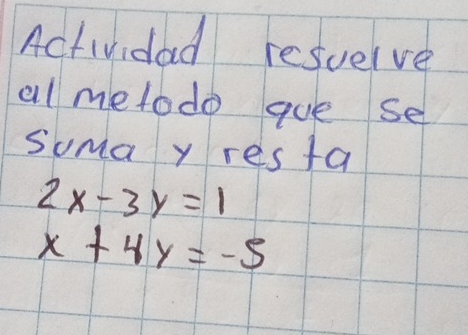 Actividad resuelve
al metodo que se
suma y resta
2x-3y=1
x+4y=-5